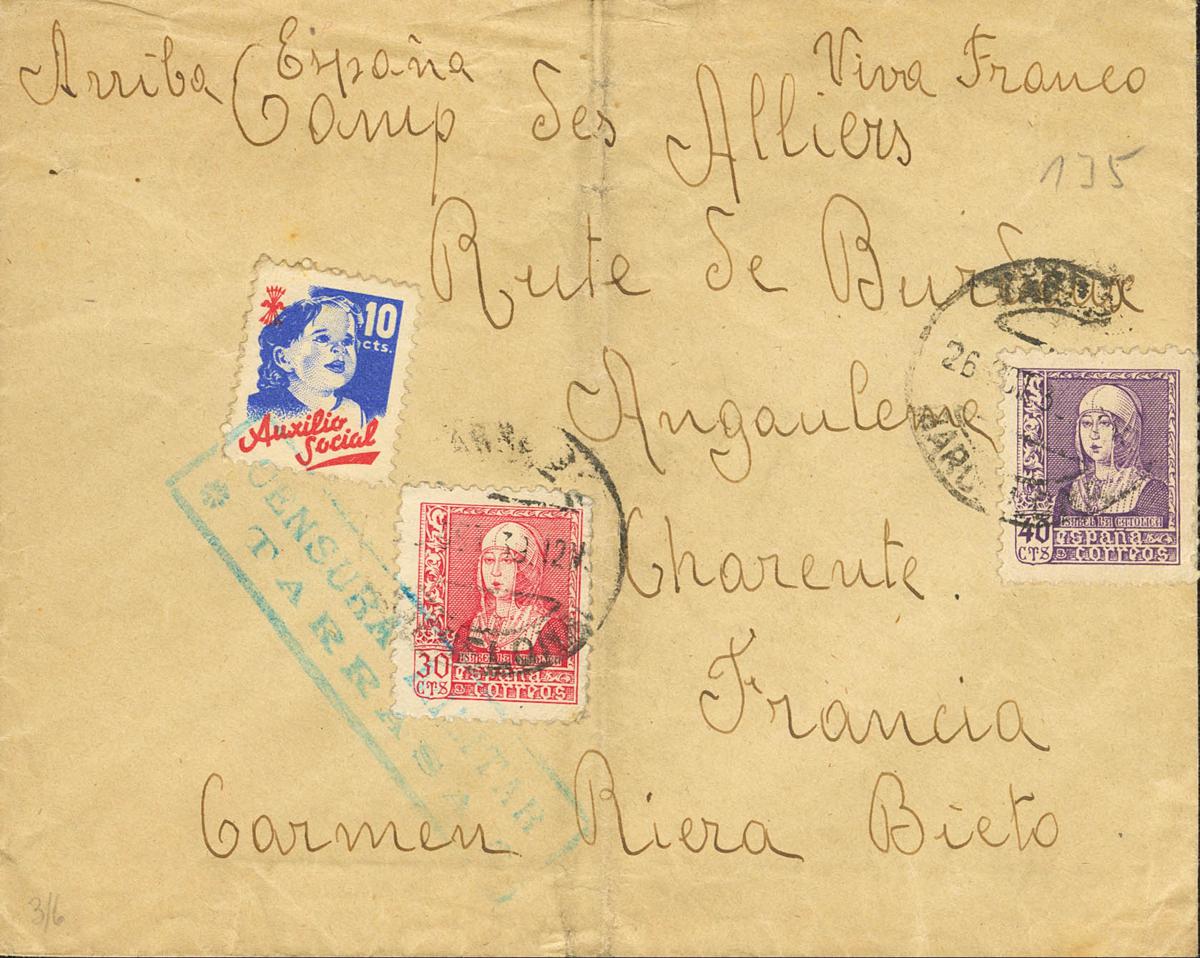 Arriba España Viva Franco
Camp des Alliers
135
Rute de Burdeux
Angauleme
Charente.
Francia
Carmen Riera Bieto
10
cts.
Auxilio
Social
CENSURA MILITAR
* TARRASA *
30
CTS
ISABEL LA CATOLICA
ESPAÑA
CORREOS
39.12M.
26
40
CTS
ISABEL LA CATOLICA
ESPAÑA
CORREOS
3/6